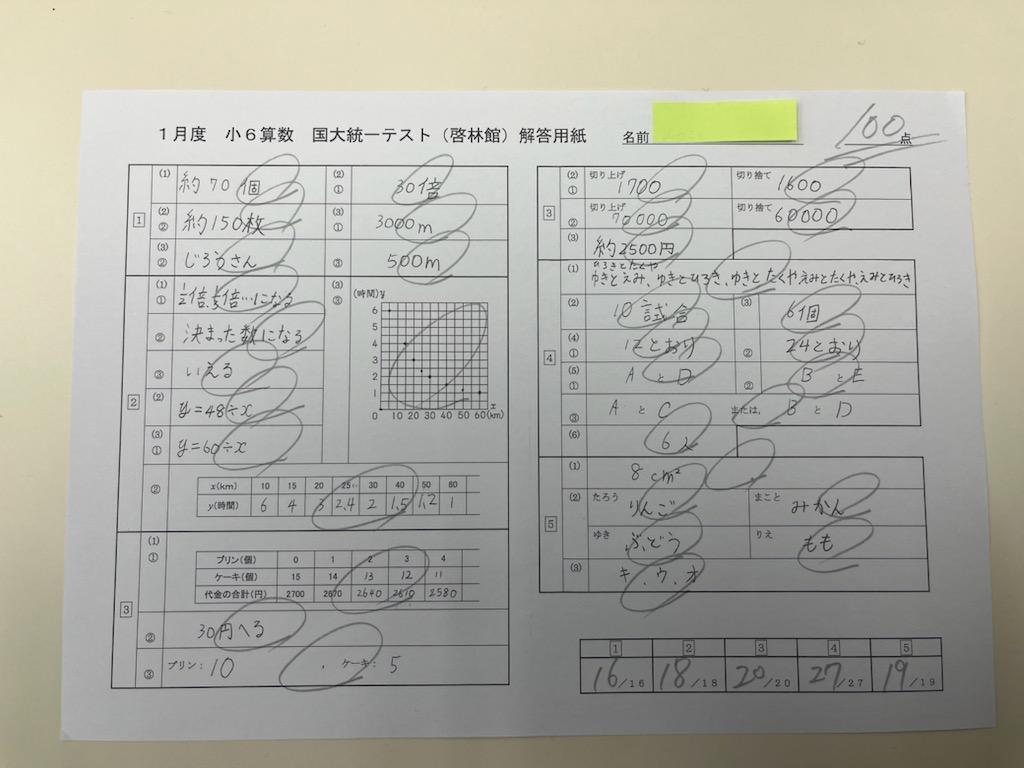 1月度 小6算数 国大統一テスト(啓林館)解答用紙 名前 100点
1
(1) 約70個
(2) ① 30倍
(2) ② 約150枚
(3) ① 3000m
(3) ② じろうさん
③ 500m
2
(1) ① 倍、倍…になる
② 決まった数になる
③ いえる
(2) y=48÷x
(3) ① y=60÷x
(3) ③
(時間)y
6
5
4
3
2
1
0 10 20 30 40 50 60(km)
x
② x(km) 10 15 20 25 30 40 50 60
y(時間) 6 4 3 2.4 2 1.5 1.2 1
3
(1) ① プリン(個) 0 1 2 3 4
ケーキ(個) 15 14 13 12 11
代金の合計(円) 2700 2670 2640 2610 2580
② 30円へる
③ プリン: 10 , ケーキ: 5
3
(2) ① 切り上げ 1700 切り捨て 1600
② 切り上げ 70000 切り捨て 60000
(3) 約2500円
4
(1) ひろきとたくや
ゆきとえみ、ゆきとひろき、ゆきとたくや、えみとたくや、えみとひろき
(2) 10試合 (3) 6個
(4) ① 12とおり ② 24とおり
(5) ① A と D ② B と E
③ A と C または、 B と D
(6) 6
5
(1) 8cm²
(2) たろう りんご まこと みかん
ゆき ぶどう りえ もも
(3) キ、ウ、オ
1 2 3 4 5
16/16 18/18 20/20 27/27 19/19